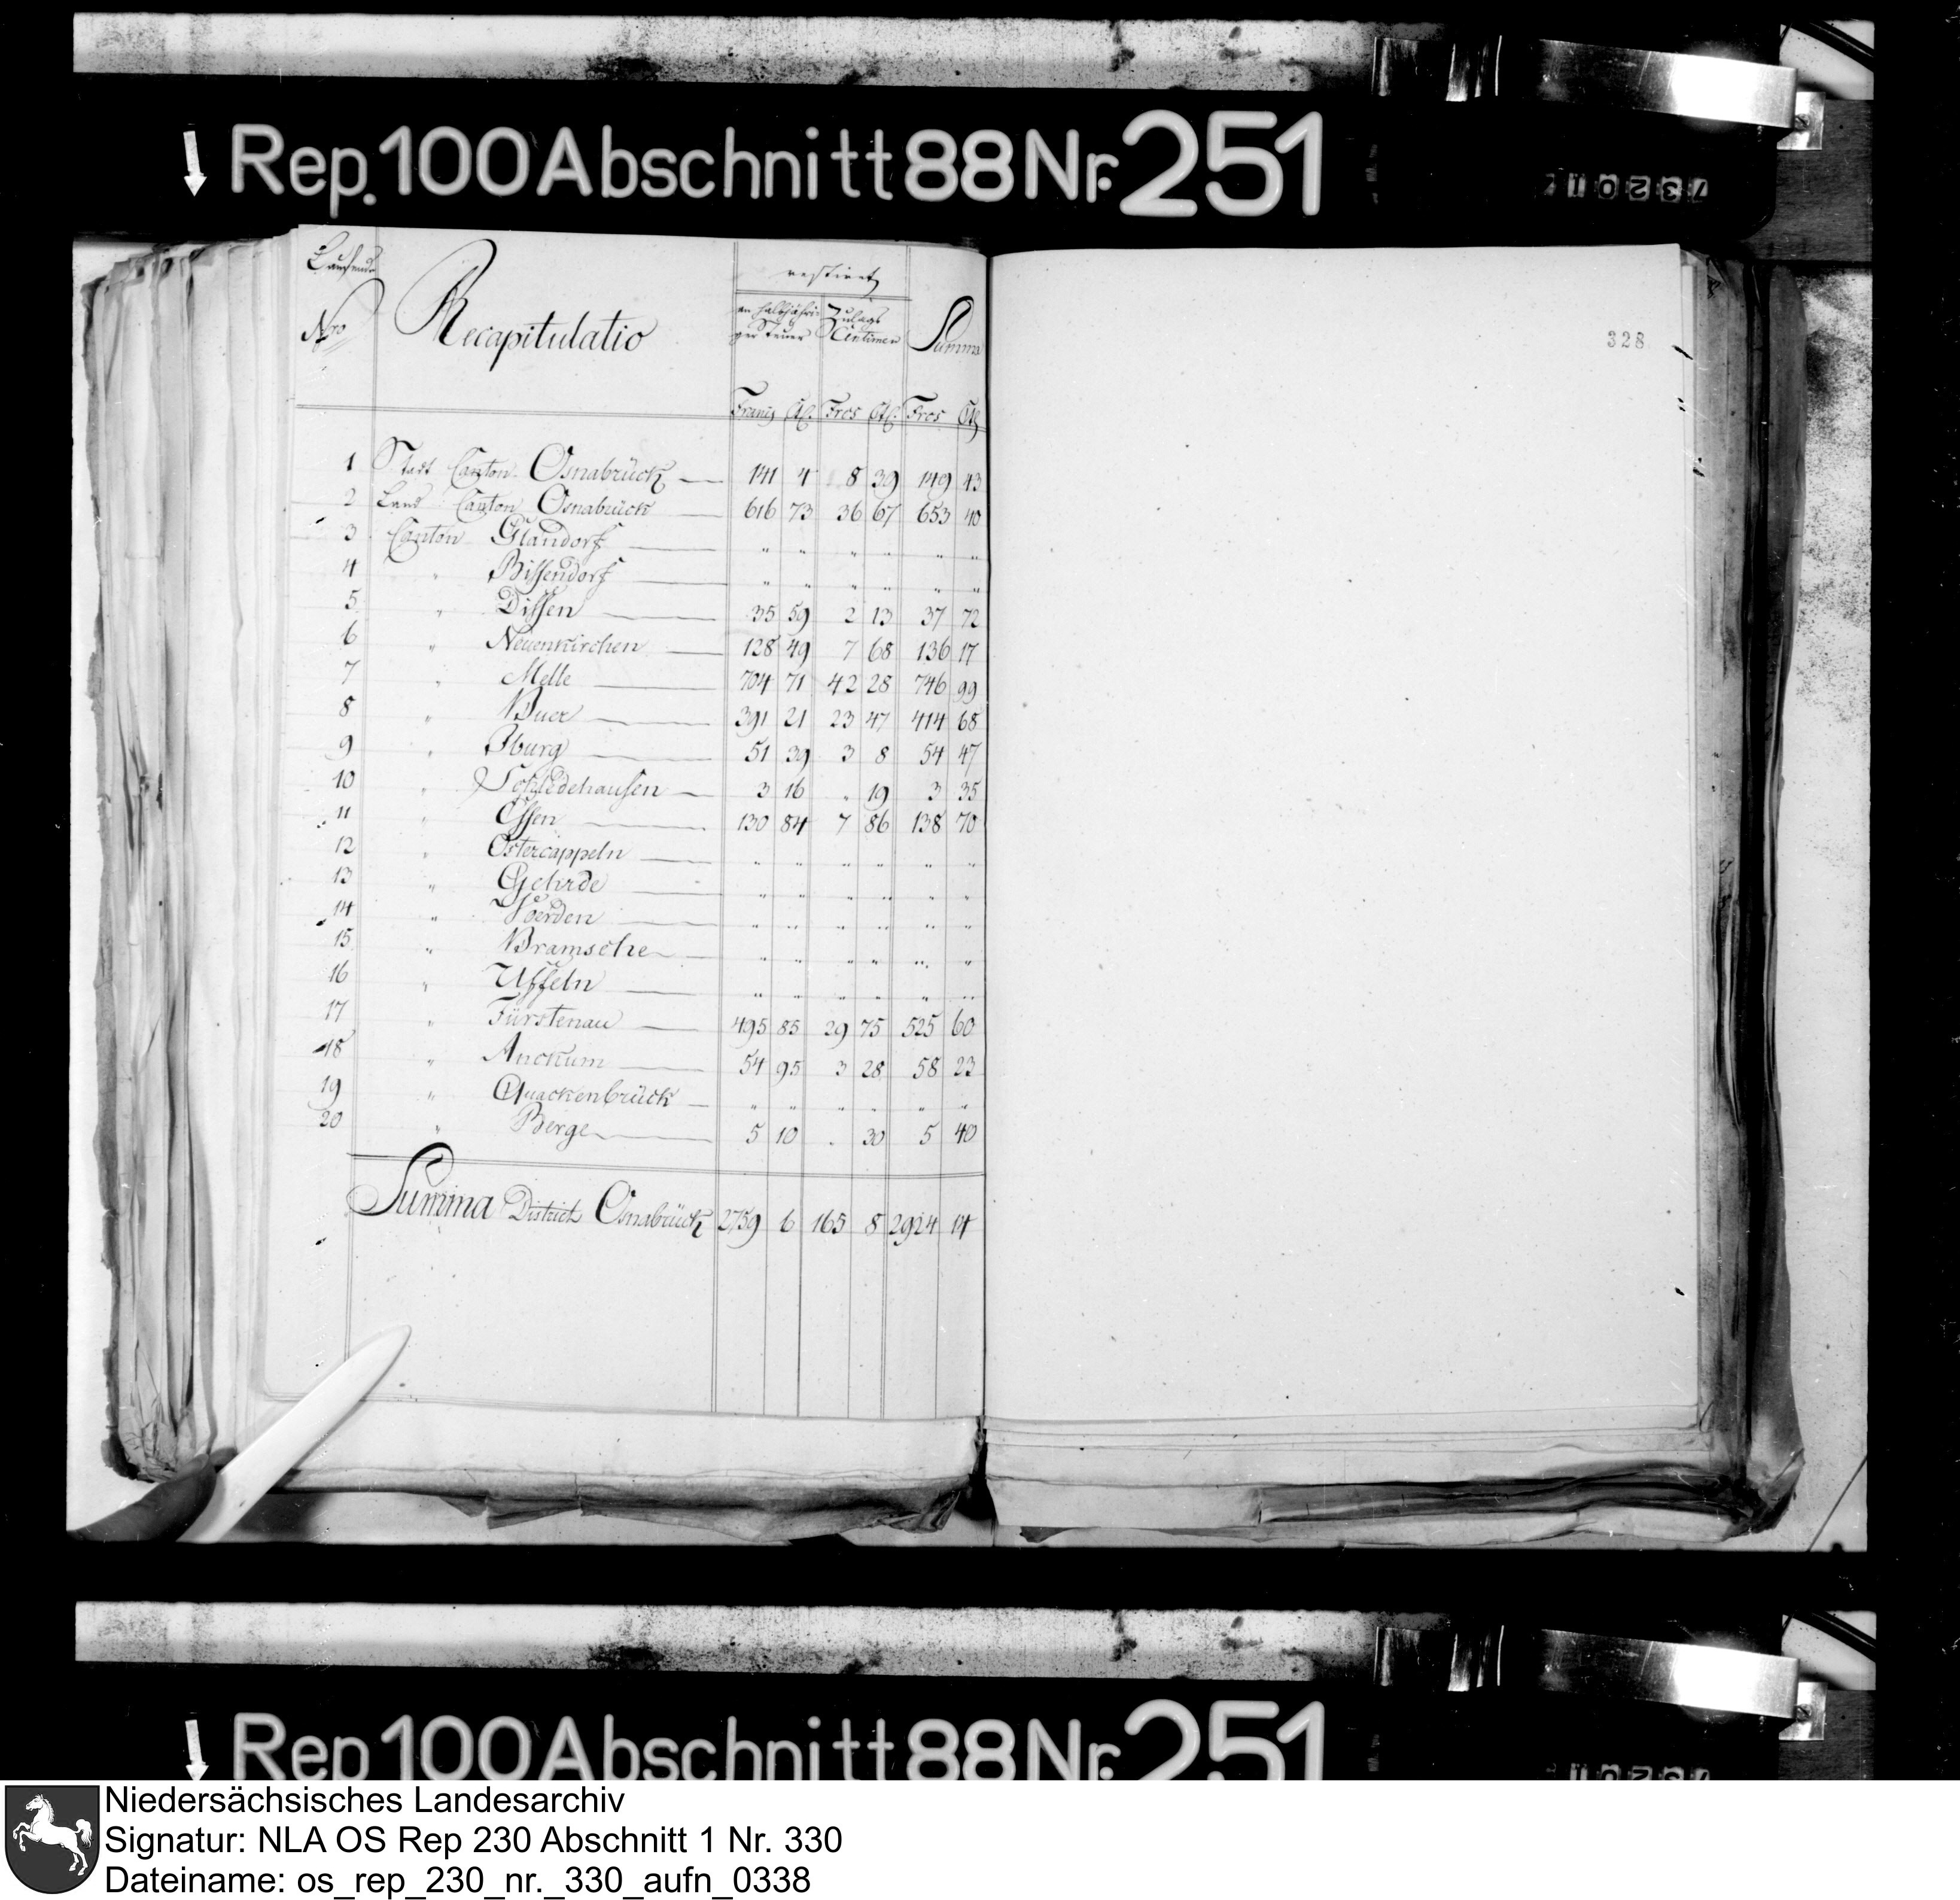 Rep. 100 Abschnitt 88 Nr. 251
Laufende
Nro
Recapitulatio
restirt
an halbjähri-
ger Steuer
Zulags
Centimen
Summa
Francs Ct. Frcs Ct. Frcs Ct.
328
1 Stadt Canton Osnabrück 141 4 8 39 149 43
2 Land Canton Osnabrück 616 73 36 67 653 40
3 Canton Glandorf " " " " " "
4 " Bissendorf " " " " " "
5 " Dissen 35 59 2 13 37 72
6 " Neuenkirchen 128 49 7 68 136 17
7 " Melle 704 71 42 28 746 99
8 " Buer 391 21 23 47 414 68
9 " Iburg 51 39 3 8 54 47
10 " Schledehausen 3 16 " 19 3 35
11 " Essen 130 84 7 86 138 70
12 " Ostercappeln " " " " " "
13 " Gehrde " " " " " "
14 " Voerden " " " " " "
15 " Bramsche " " " " " "
16 " Uffeln " " " " " "
17 " Fürstenau 495 85 29 75 525 60
18 " Anckum 54 95 3 28 58 23
19 " Quackenbrück " " " " " "
20 " Berge 5 10 " 30 5 40
Summa District Osnabrück 2759 6 165 8 2924 14
Rep 100 Abschnitt 88 Nr. 251
Niedersächsisches Landesarchiv
Signatur: NLA OS Rep 230 Abschnitt 1 Nr. 330
Dateiname: os_rep_230_nr._330_aufn_0338